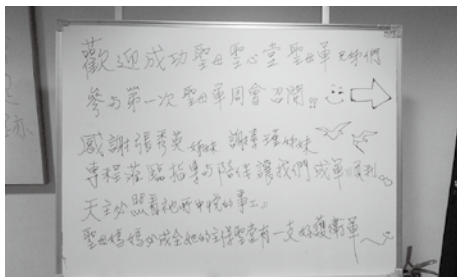 歡迎成功聖母聖心堂聖母軍兄弟們
參与第一次聖母軍周會召開!!
感謝張秀英姊妹 謝 瑾姊妹
專程蒞臨指導与陪伴讓我們成軍順利
天主必照看祂所中悅的事工。
聖母媽媽必成全她的主保聖堂有一支好護衛軍